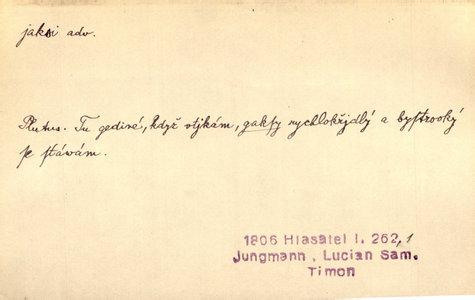 jaksi adv.
Plutus. Tu gediné, když vtjkám, gaksy rychlokřjdlý a bystrooký
se stáwám.
1806 Hlasatel I. 262,1
Jungmann , Lucian Sam.
Timon